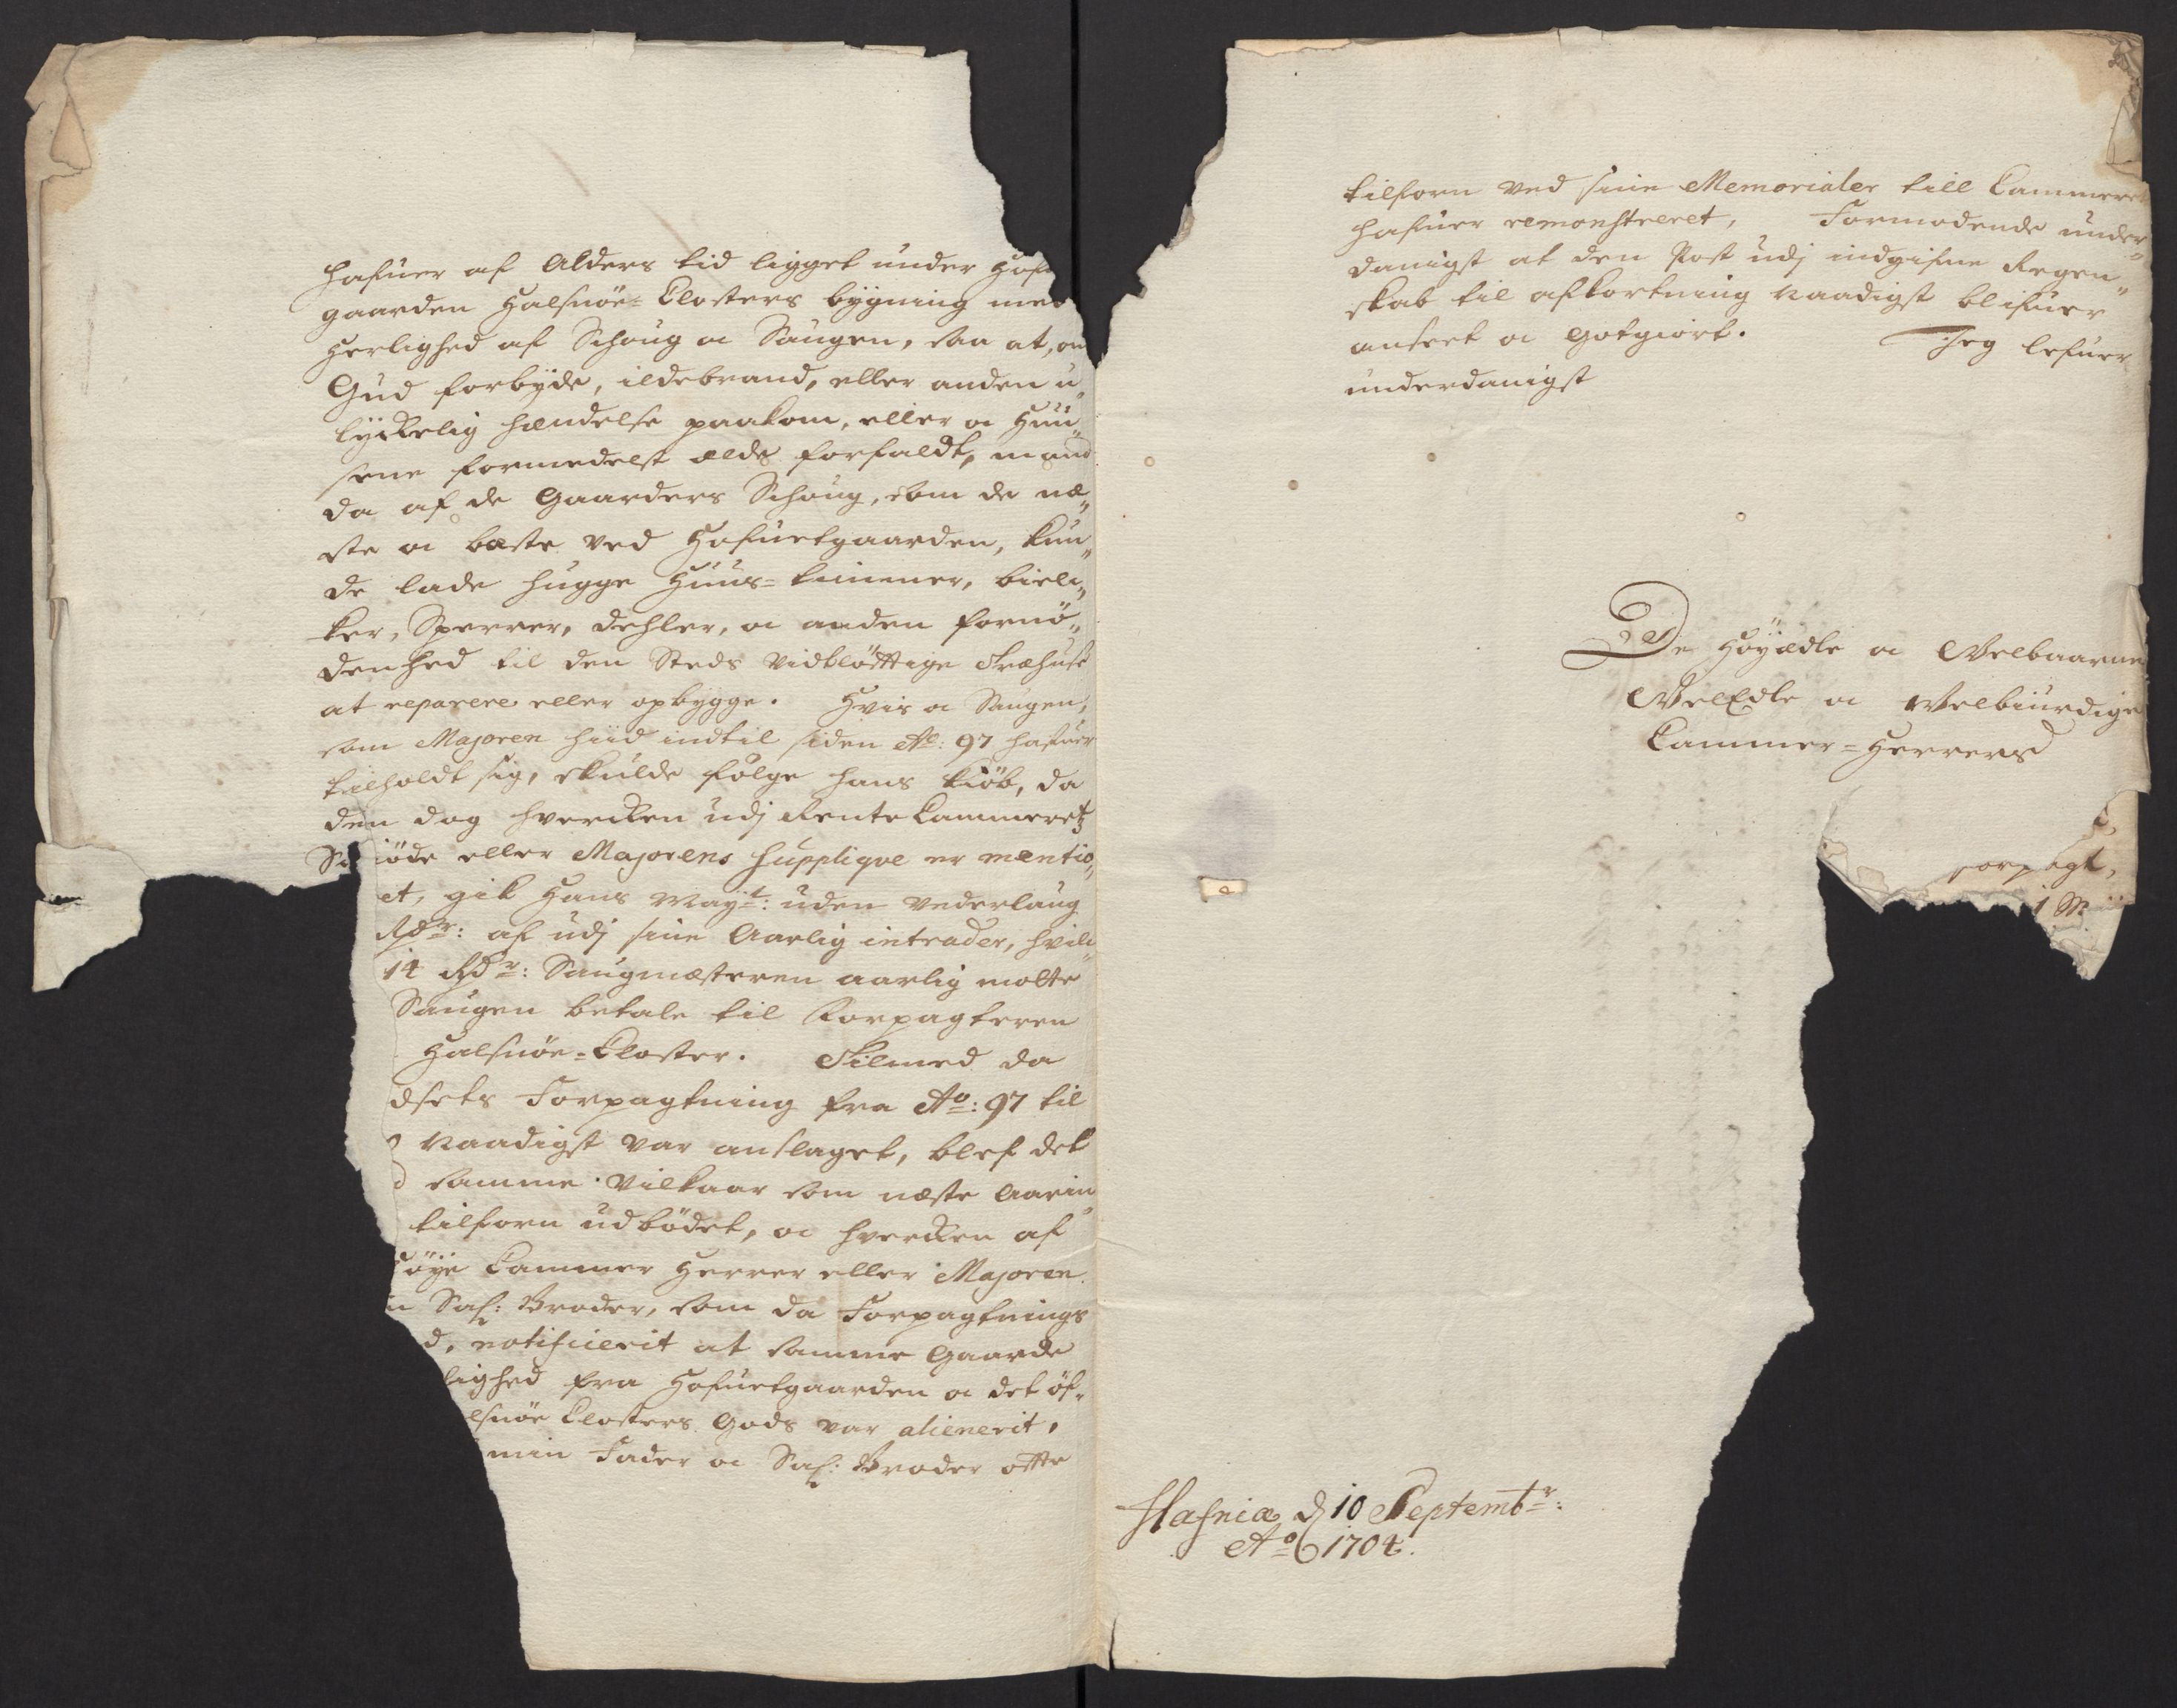 hafuer af Alders tid ligget under Hof
gaarden Halsnöe-Closters bygning med
herlighed af Schoug oc Saugen, saa at, om
Gud forbyde, ildebrand, eller anden u„
lyckelig hændelse paakom, eller oc Huu„
sene formedelst ælde forfaldt, mand
da af de Gaarders Schoug, som de næ„
ste oc bæste ved Hofuetgaarden, kun„
de lade hugge Huus-timmer, biel„
ker, Sperrer, dehler, oc anden fornö„
denhed til den Steds vidtlöftige Træhuse
at reparere eller opbygge. Hvis oc Saugen,
som Majoren hiid indtil siden Ao: 97 hafuer
tilholdt sig, skulde fölge hans kiöb, da
den dog hvercken udj Rente Cammeretz
Sc iöde eller Majorens Supplique er mentio„
et, gik Hans Mayt: uden vederlaug
Rdr: af udj sine Aarlig intrader, hvilc„
14 Rdr: Saugmæsteren aarlig motte
Saugen betale til Forpagteren
Halsnöe-Closter. Tilmed da
dsets Forpagtning fra Ao: 97 til
naadigst var anslaget, blef det
samme vilkaar som næste Aarin„
tilforn udbödet, oc hvercken af
öye Cammer Herrer eller Majoren
n Sal: Broder, som da Forpagtnings
d, notificerit at samme Gaarde
lighed fra Hofuetgaarden oc det öf„
lsnöe Closters Gods var alienerit,
min Fader oc Sal: Broder ofte
tilforn ved sine Memorialer till Cammeret
hafuer remonstreret, Formodende under„
danigst at den Post udj indgifne Regen„
skab til afkortning naadigst blifuer
anseet oc gotgiort. Jeg lefuer
underdanigst
De Höyædle oc Velbaarne
VelEdle oc Velbiurdige
Cammer-Herrers
1 M
Hafniæ d 10 Septembr:
Ao 1704.